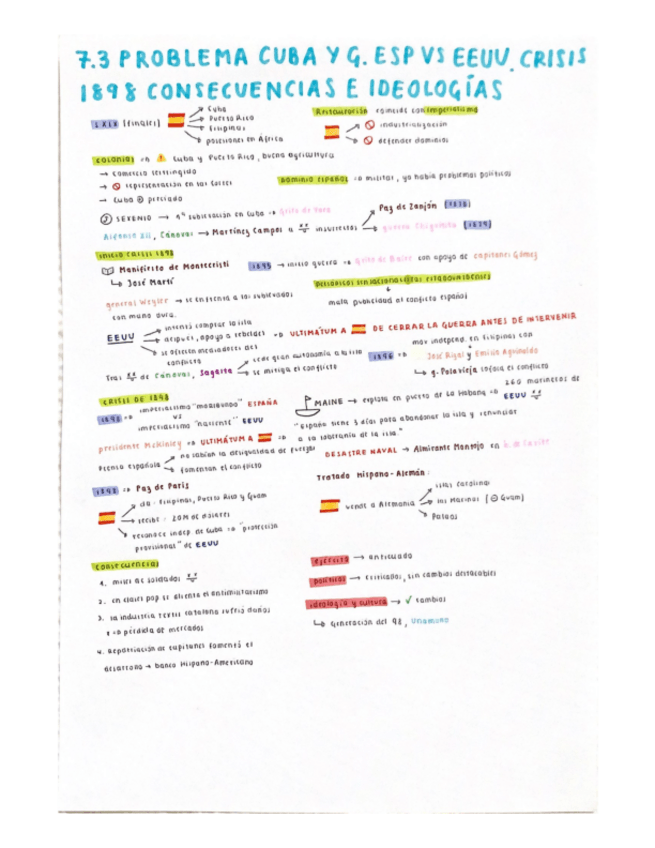 7.3 PROBLEMA CUBA Y G. ESP VS EEUU. CRISIS
1898 CONSECUENCIAS E IDEOLOGÍAS
S.XIX (finales) → Cuba
→ Puerto Rico
→ Filipinas
→ posesiones en África
Restauración coincide con imperialismo
→ industrialización
→ defender dominios
colonias => Cuba y Puerto Rico, buena agricultura
→ comercio restringido
→ representación en las Cortes
→ Cuba
Dominio español => militar, ya había problemas políticos
SEXENIO → 1ª sublevación en Cuba => grito de Yara
Alfonso XII, Cánovas → Martínez Campos a insurrectos
→ Paz de Zanjón (1878)
→ guerra Chiquita (1879)
inicio crisis 1898
Manifiesto de Montecristi
↳ José Martí
1895 → inicio guerra → grito de Baire con apoyo de capitanes Gómez
periódicos sensacionalistas estadounidenses
↓
mala publicidad al conflicto español
general Weyler → se enfrenta a los sublevados
con mano dura.
EEUU → intentó comprar la isla
→ después, apoyo a rebeldes
→ se ofrecen mediadores del
conflicto
=> ULTIMÁTUM A DE CERRAR LA GUERRA ANTES DE INTERVENIR
Tras de Cánovas, Sagasta → cede gran autonomía a la isla
→ se mitiga el conflicto
1896 => mov independ. en Filipinas con
José Rizal y Emilio Aguinaldo
↳ g. Polavieja sofoca el conflicto
CRISIS DE 1898
1898 => imperialismo "moribundo" ESPAÑA
vs
imperialismo "naciente" EEUU
MAINE → explota en puerto de La Habana => 260 marineros de
EEUU
presidente McKinley => ULTIMÁTUM A =>
"España tiene 3 días para abandonar la isla y renunciar
a la soberanía de la isla."
Prensa española → no sabían la desigualdad de fuerzas
→ fomentan el conflicto
DESASTRE NAVAL → Almirante Montojo en b. de Cavite
1898 => Paz de París
→ da: Filipinas, Puerto Rico y Guam
→ recibe: 20M de dólares
→ reconoce indep. de Cuba => "protección
provisional" de EEUU
Tratado Hispano-Alemán:
vende a Alemania → islas Carolinas
→ las Marianas (⊖ Guam)
→ Palaos
consecuencias
1. miles de soldados
2. en clases pop se alienta el antimilitarismo
3. la industria textil catalana sufrió daños
=> pérdida de mercados
4. Repatriación de capitales fomentó el
desarrollo → banco Hispano-Americano
ejército → anticuado
políticos → criticados, sin cambios destacables
ideología y cultura → ✓ cambios
↳ generación del 98, Unamuno